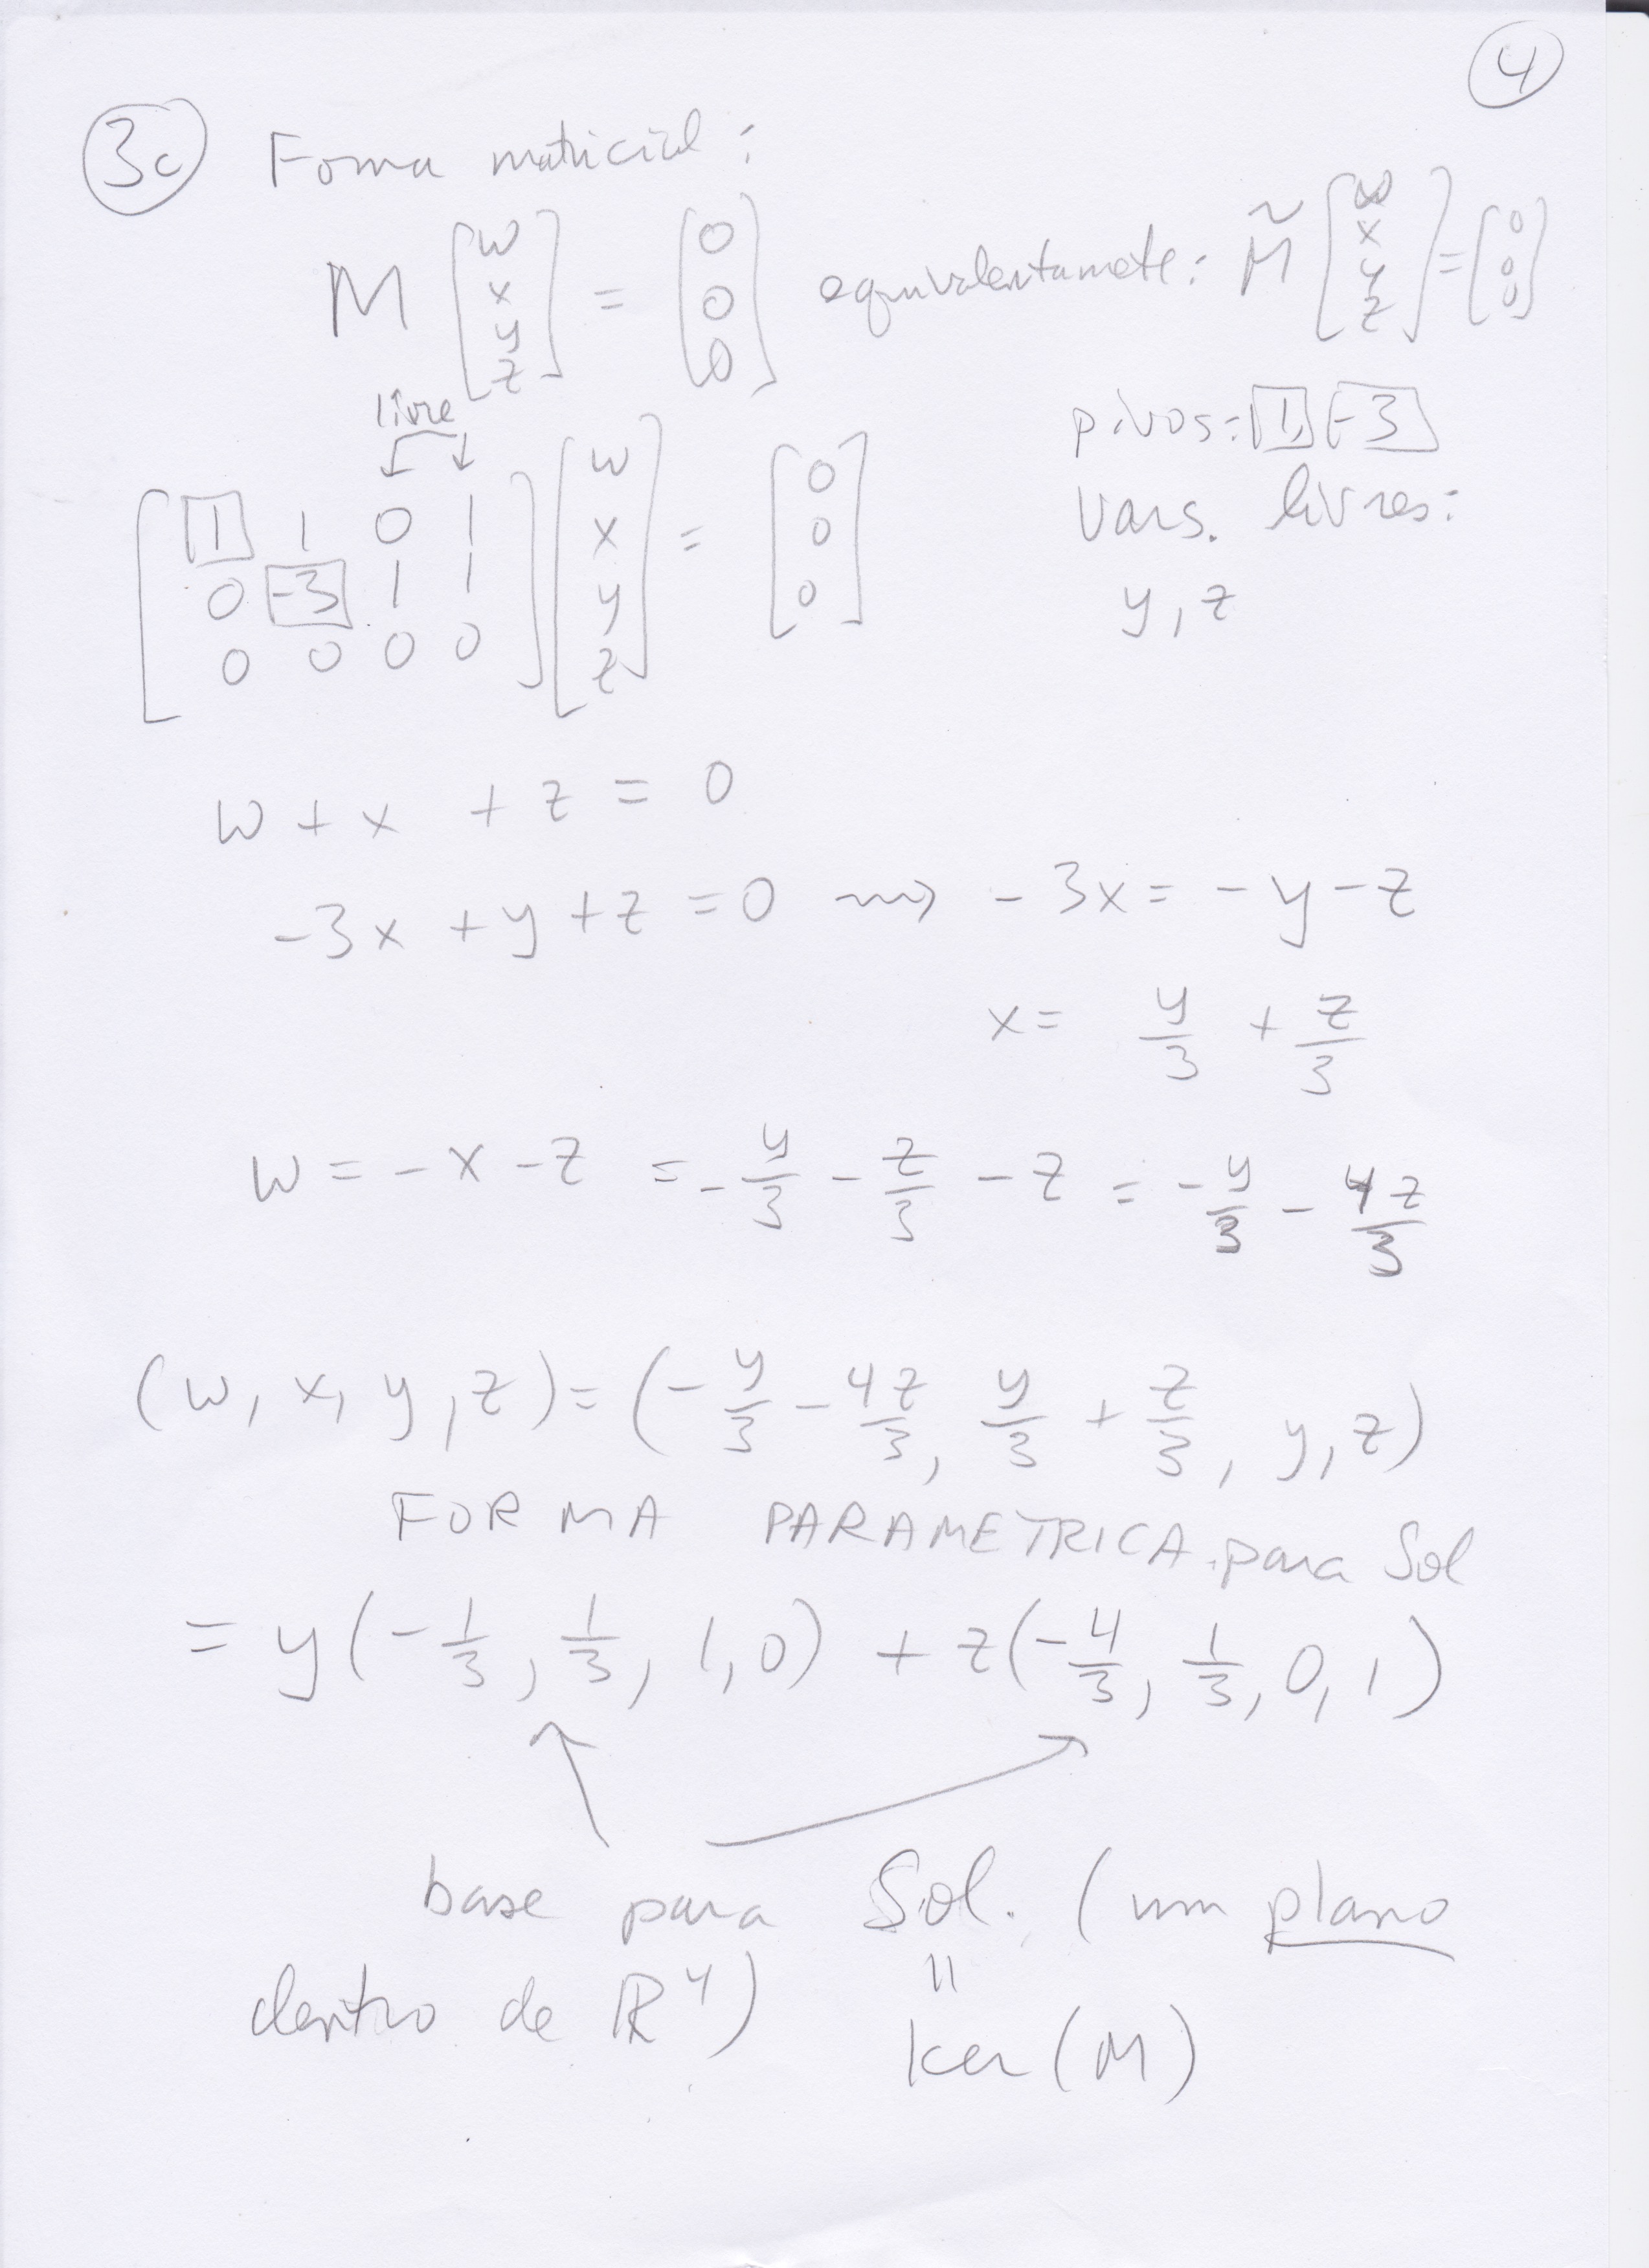 4
3c Forma matricial:
M [w x y z] = [0 0 0] equivalentamete: M̃ [w x y z] = [0 0 0]
livre
pivos: 1, -3
[1 1 0 1
0 -3 1 1
0 0 0 0] [w x y z] = [0 0 0]
vars. livres:
y, z
w + x + z = 0
-3x + y + z = 0 ⇝ -3x = -y - z
x = y/3 + z/3
w = -x - z = -y/3 - z/3 - z = -y/3 - 4z/3
(w, x, y, z) = (-y/3 - 4z/3, y/3 + z/3, y, z)
FORMA PARAMETRICA para Sol
= y(-1/3, 1/3, 1, 0) + z(-4/3, 1/3, 0, 1)
base para Sol. (um plano
dentro de ℝ⁴) =
ker(M)